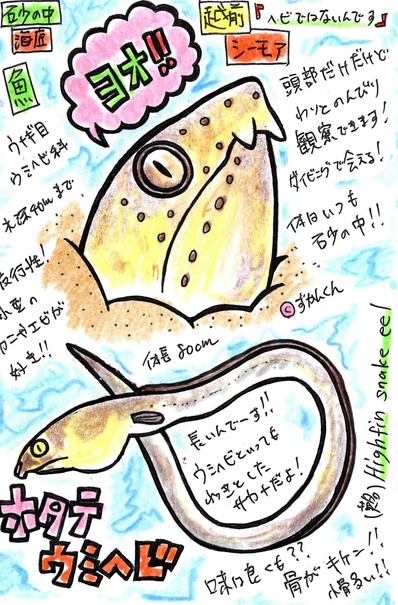 砂の中
海底
魚
ウナギ目
ウミヘビ科
水深40mまで
夜行性!
小型の
カニやエビが
好き!!
ヨオ!!
越前
シーモア
『ヘビではないんです』
頭部だけだけど
わりとのんびり
観察できます!
ダイビングで会える!
体はいつも
砂の中!!
©ずかんくん
体長80cm
長いんでーす!!
ウミヘビといっても
れっきとした
サカナだよ!
(英) Highfin snake eel
ホタテ
ウミヘビ
味は良くも??
骨がキケン!!
小骨多い!!